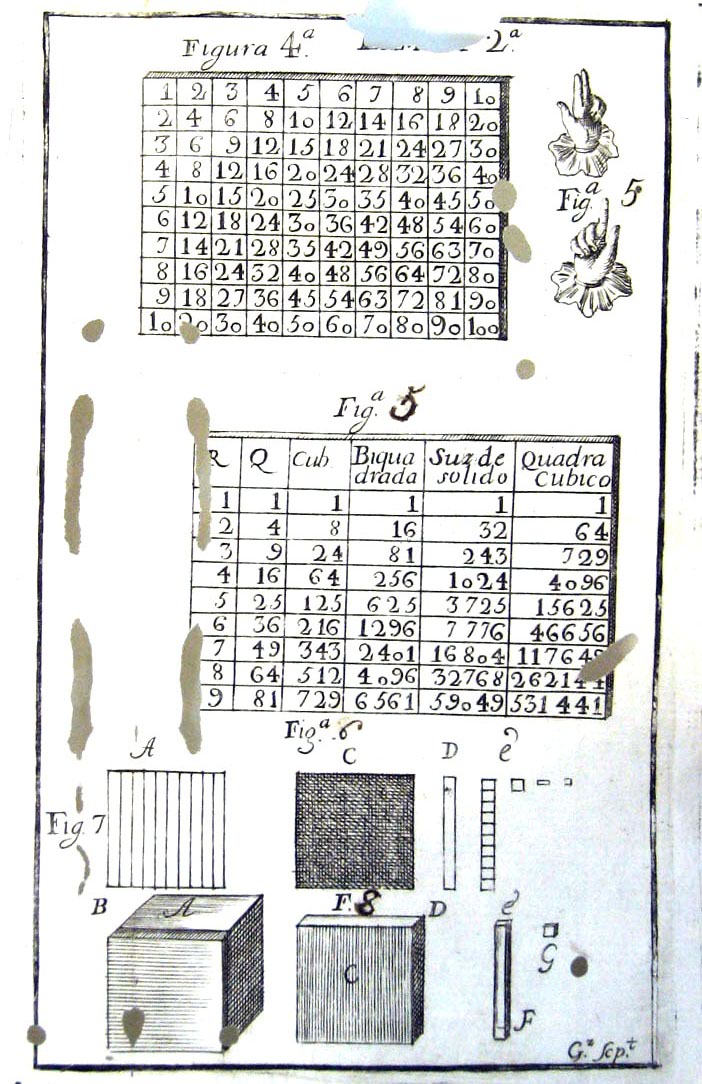 Figura 4.ª 2.ª
1 2 3 4 5 6 7 8 9 10
2 4 6 8 10 12 14 16 18 20
3 6 9 12 15 18 21 24 27 30
4 8 12 16 20 24 28 32 36 40
5 10 15 20 25 30 35 40 45 50
6 12 18 24 30 36 42 48 54 60
7 14 21 28 35 42 49 56 63 70
8 16 24 32 40 48 56 64 72 80
9 18 27 36 45 54 63 72 81 90
10 20 30 40 50 60 70 80 90 100
Fig.ª 5
Fig.ª 5
R Q Cub Biqua drada Surde solido Quadra Cubico
1 1 1 1 1 1
2 4 8 16 32 64
3 9 24 81 243 729
4 16 64 256 1024 4096
5 25 125 625 3725 15625
6 36 216 1296 7776 46656
7 49 343 2401 16804 117649
8 64 512 4096 32768 262144
9 81 729 6561 59049 531441
Fig.ª 6
A C D e
Fig. 7
F. 8
B A D e
C G
F
G.z scp.t